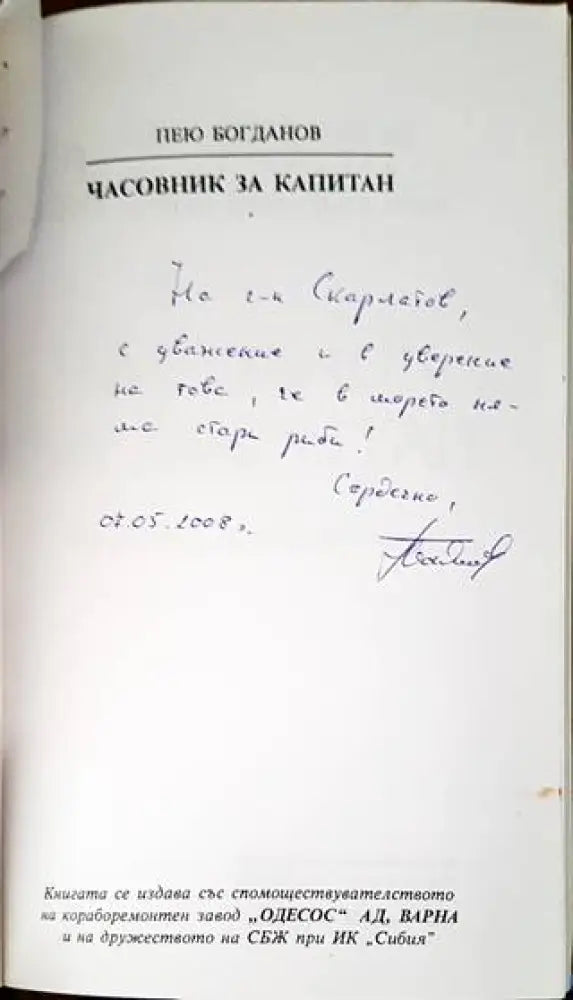 ПЕЮ БОГДАНОВ
ЧАСОВНИК ЗА КАПИТАН
На г-н Скарлатов,
с уважение и в уверение
на това, че в морето ня-
ма стари риби!
Сърдечно,
07.05.2008 г.
Книгата се издава със спомоществувателството
на кораборемонтен завод „ОДЕСОС“ АД, ВАРНА
и на дружеството на СБЖ при ИК „Сибия"